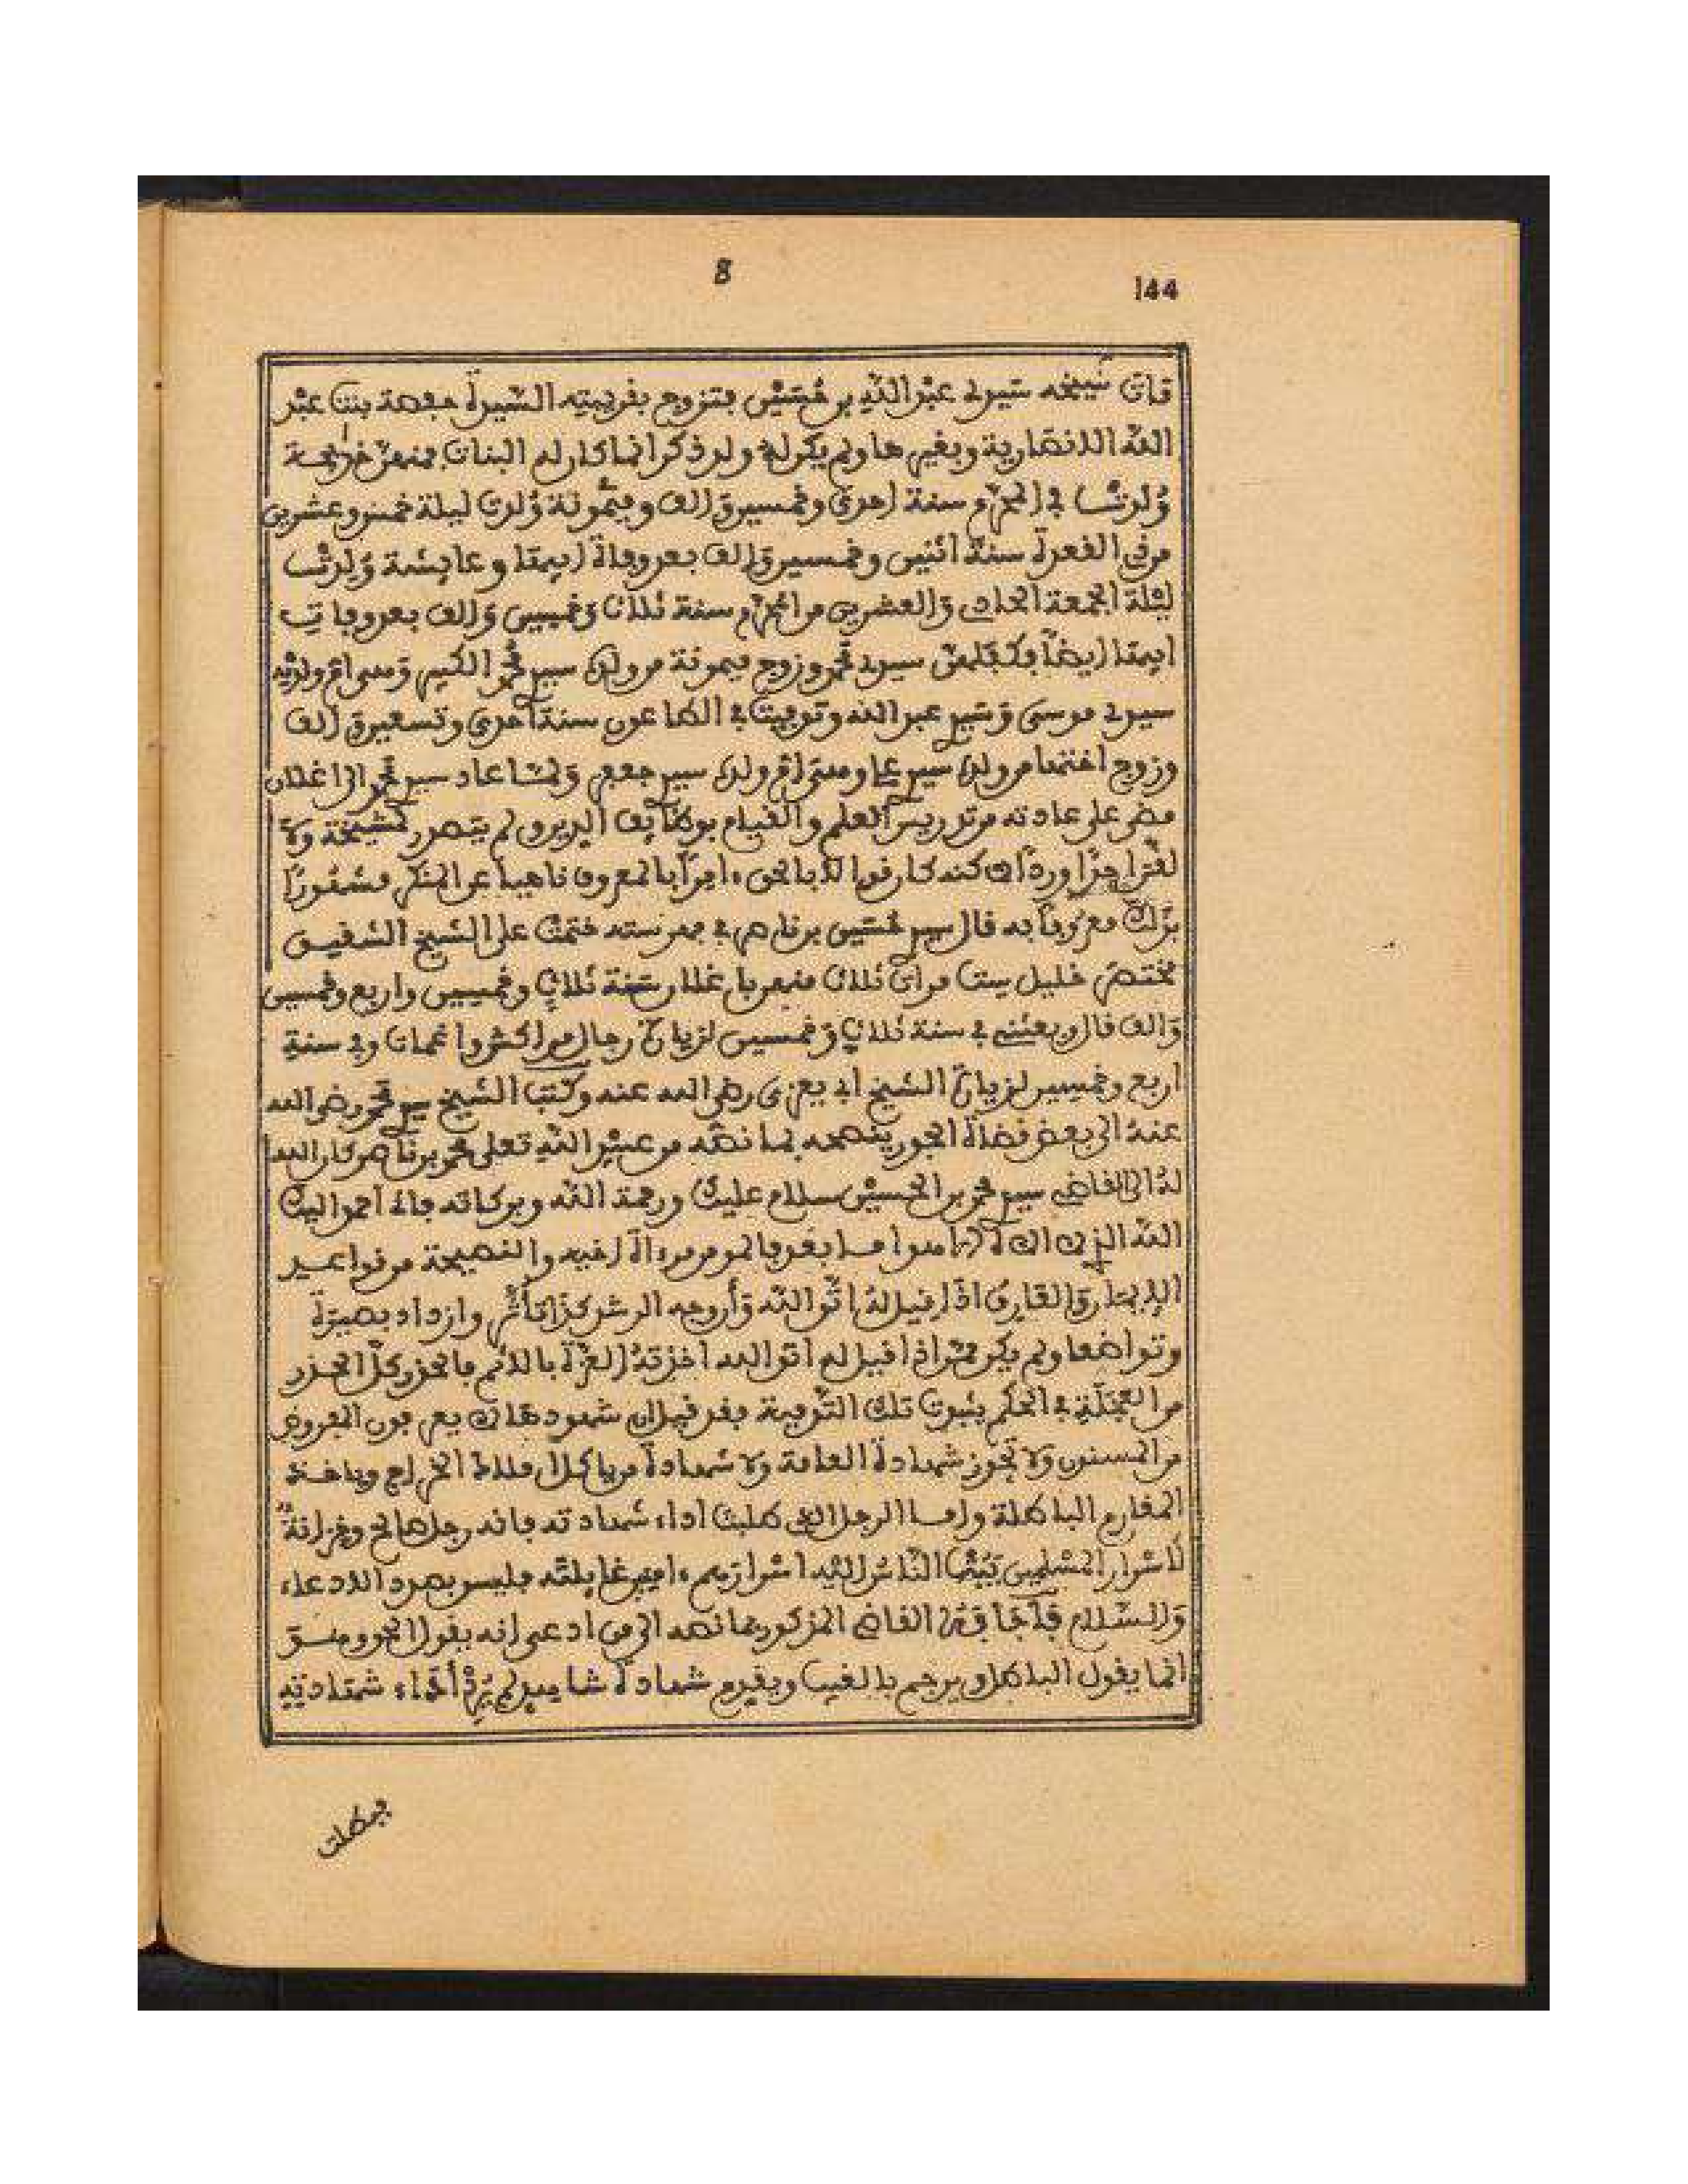 8
144
مات شيخه سيدي عبد الله بن حسين فتزوج بقريبته السيدة حفصة بنت عبد
الله الانصارية وبغيرها ولم يكن له ولد ذكر انما كان له البنات فمنهن خديجة
وُلدت في المحرم سنة احدى وخمسين والف وميمونة وُلدت ليلة خمس وعشرين
من ذي القعدة سنة اثنين وخمسين والف بعد وفاة ابيها وعايشة وُلدت
ليلة الجمعة الحادي والعشرين من المحرم سنة ثلاث وخمسين والف بعد وفات
ابيها ايضا فكفلهن سيدي محمد وزوج ميمونة من ولده سيدي محمد الكبير ومنها ولديه
سيدي موسى وسيدي عبد الله وتوفيت في الطاعون سنة احدى وتسعين والف
وزوج اختها من ولده سيدي علي ومنها ولده سيدي جعفر ولما عاد سيدي محمد الى اغلان
مضى على عادته من تدريس العلم والقيام بوظايف الدين ولم يتصدر لمشيخة ولا
لقن احدا وردا لكنه كان قوالا بالحق ءامرا بالمعروف ناهيا عن المنكر مشهورا
بذلك معروفا به قال سيدي حسين بن ناصر في فهرسته ختمت على الشيخ الشقيق
مختصر خليل ست مرات ثلاث منهن باغلان سنة ثلاث وخمسين واربع وخمسين
والف قال وبعثني في سنة ثلاث وخمسين لزيارة رجال مراكش واغمات وفي سنة
اربع وخمسين لزيارة الشيخ ابي يعزى رضي الله عنه وكتب الشيخ سيدي محمد رضي الله
عنه الى بعض قضاة الجور ينصحه بما نصه من عبيد الله تعلى محمد بن ناصر كان الله
له الى القاضي سيدي محمد بن الحسين سلام عليك ورحمة الله وبركاته فاني احمد اليك
الله الذي لا اله الا هو اما بعد فالمومن مرءاة اخيه والنصيحة من قواعد
الايمان والقارئ اذا قيل له اتق الله وأروجه الرشد كذا تأثر وازداد بصيرة
وتواضعا ولم يكن ممن اذا قيل له اتق الله اخذته العزة بالاثم فالحذر كل الحذر
من العجلة في الحكم بثبوت تلك التومية فقد قيل ان شهودها لا يعرفون المفروض
من المسنون ولا تجوز شهادة العامة ولا شهادة من ياكل الخراج وياخذ
المغارم الباطلة واما الرجل الذي طلبت اداء شهادته فانه رجل صالح وخزانة
لاسرار المسلمين يبثها الناس اليه اسرارهم فليس بصرد الادعاء
والسلام فأجابه القاضي المذكور بما نصه الى من ادعى انه يقول الحق وهو
انما يقول الباطل ويرجم بالغيب ويقدم شهادة شاهد لم يرد أداء شهادته
فطلب